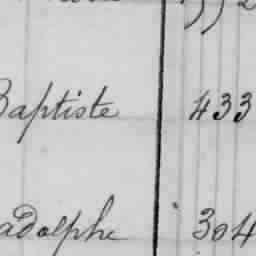 Baptiste 433
adolphe 304